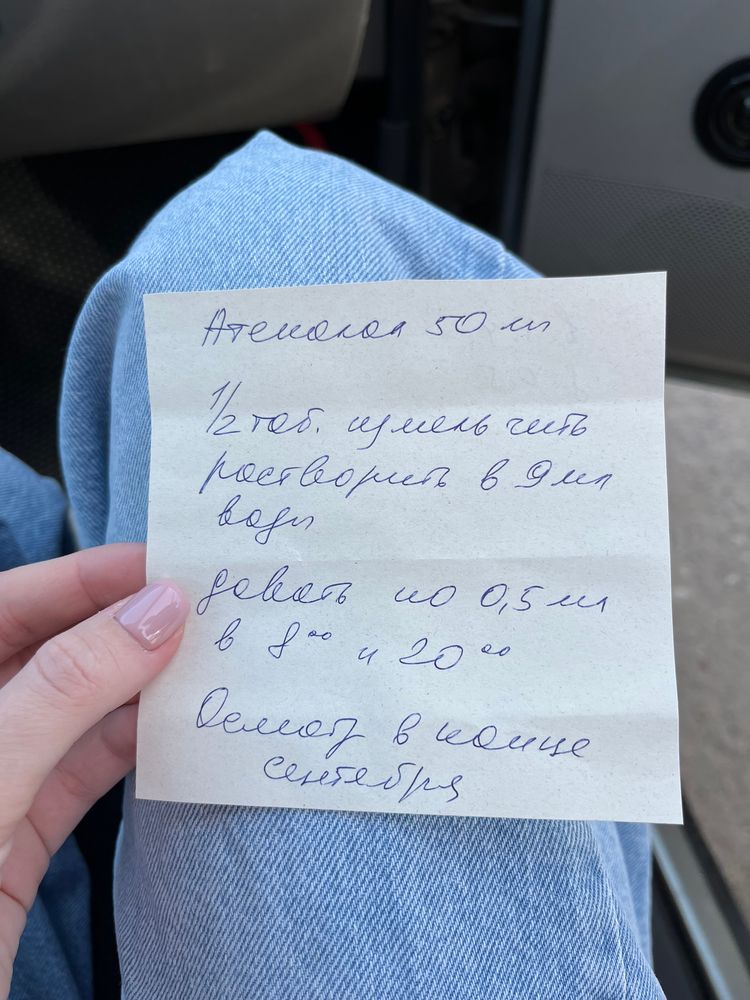 Атенолол 50 мг
1/2 таб. измельчить
растворить в 9 мл
воды
давать по 0,5 мл
в 8⁰⁰ и 20⁰⁰
Осмотр в конце
сентября